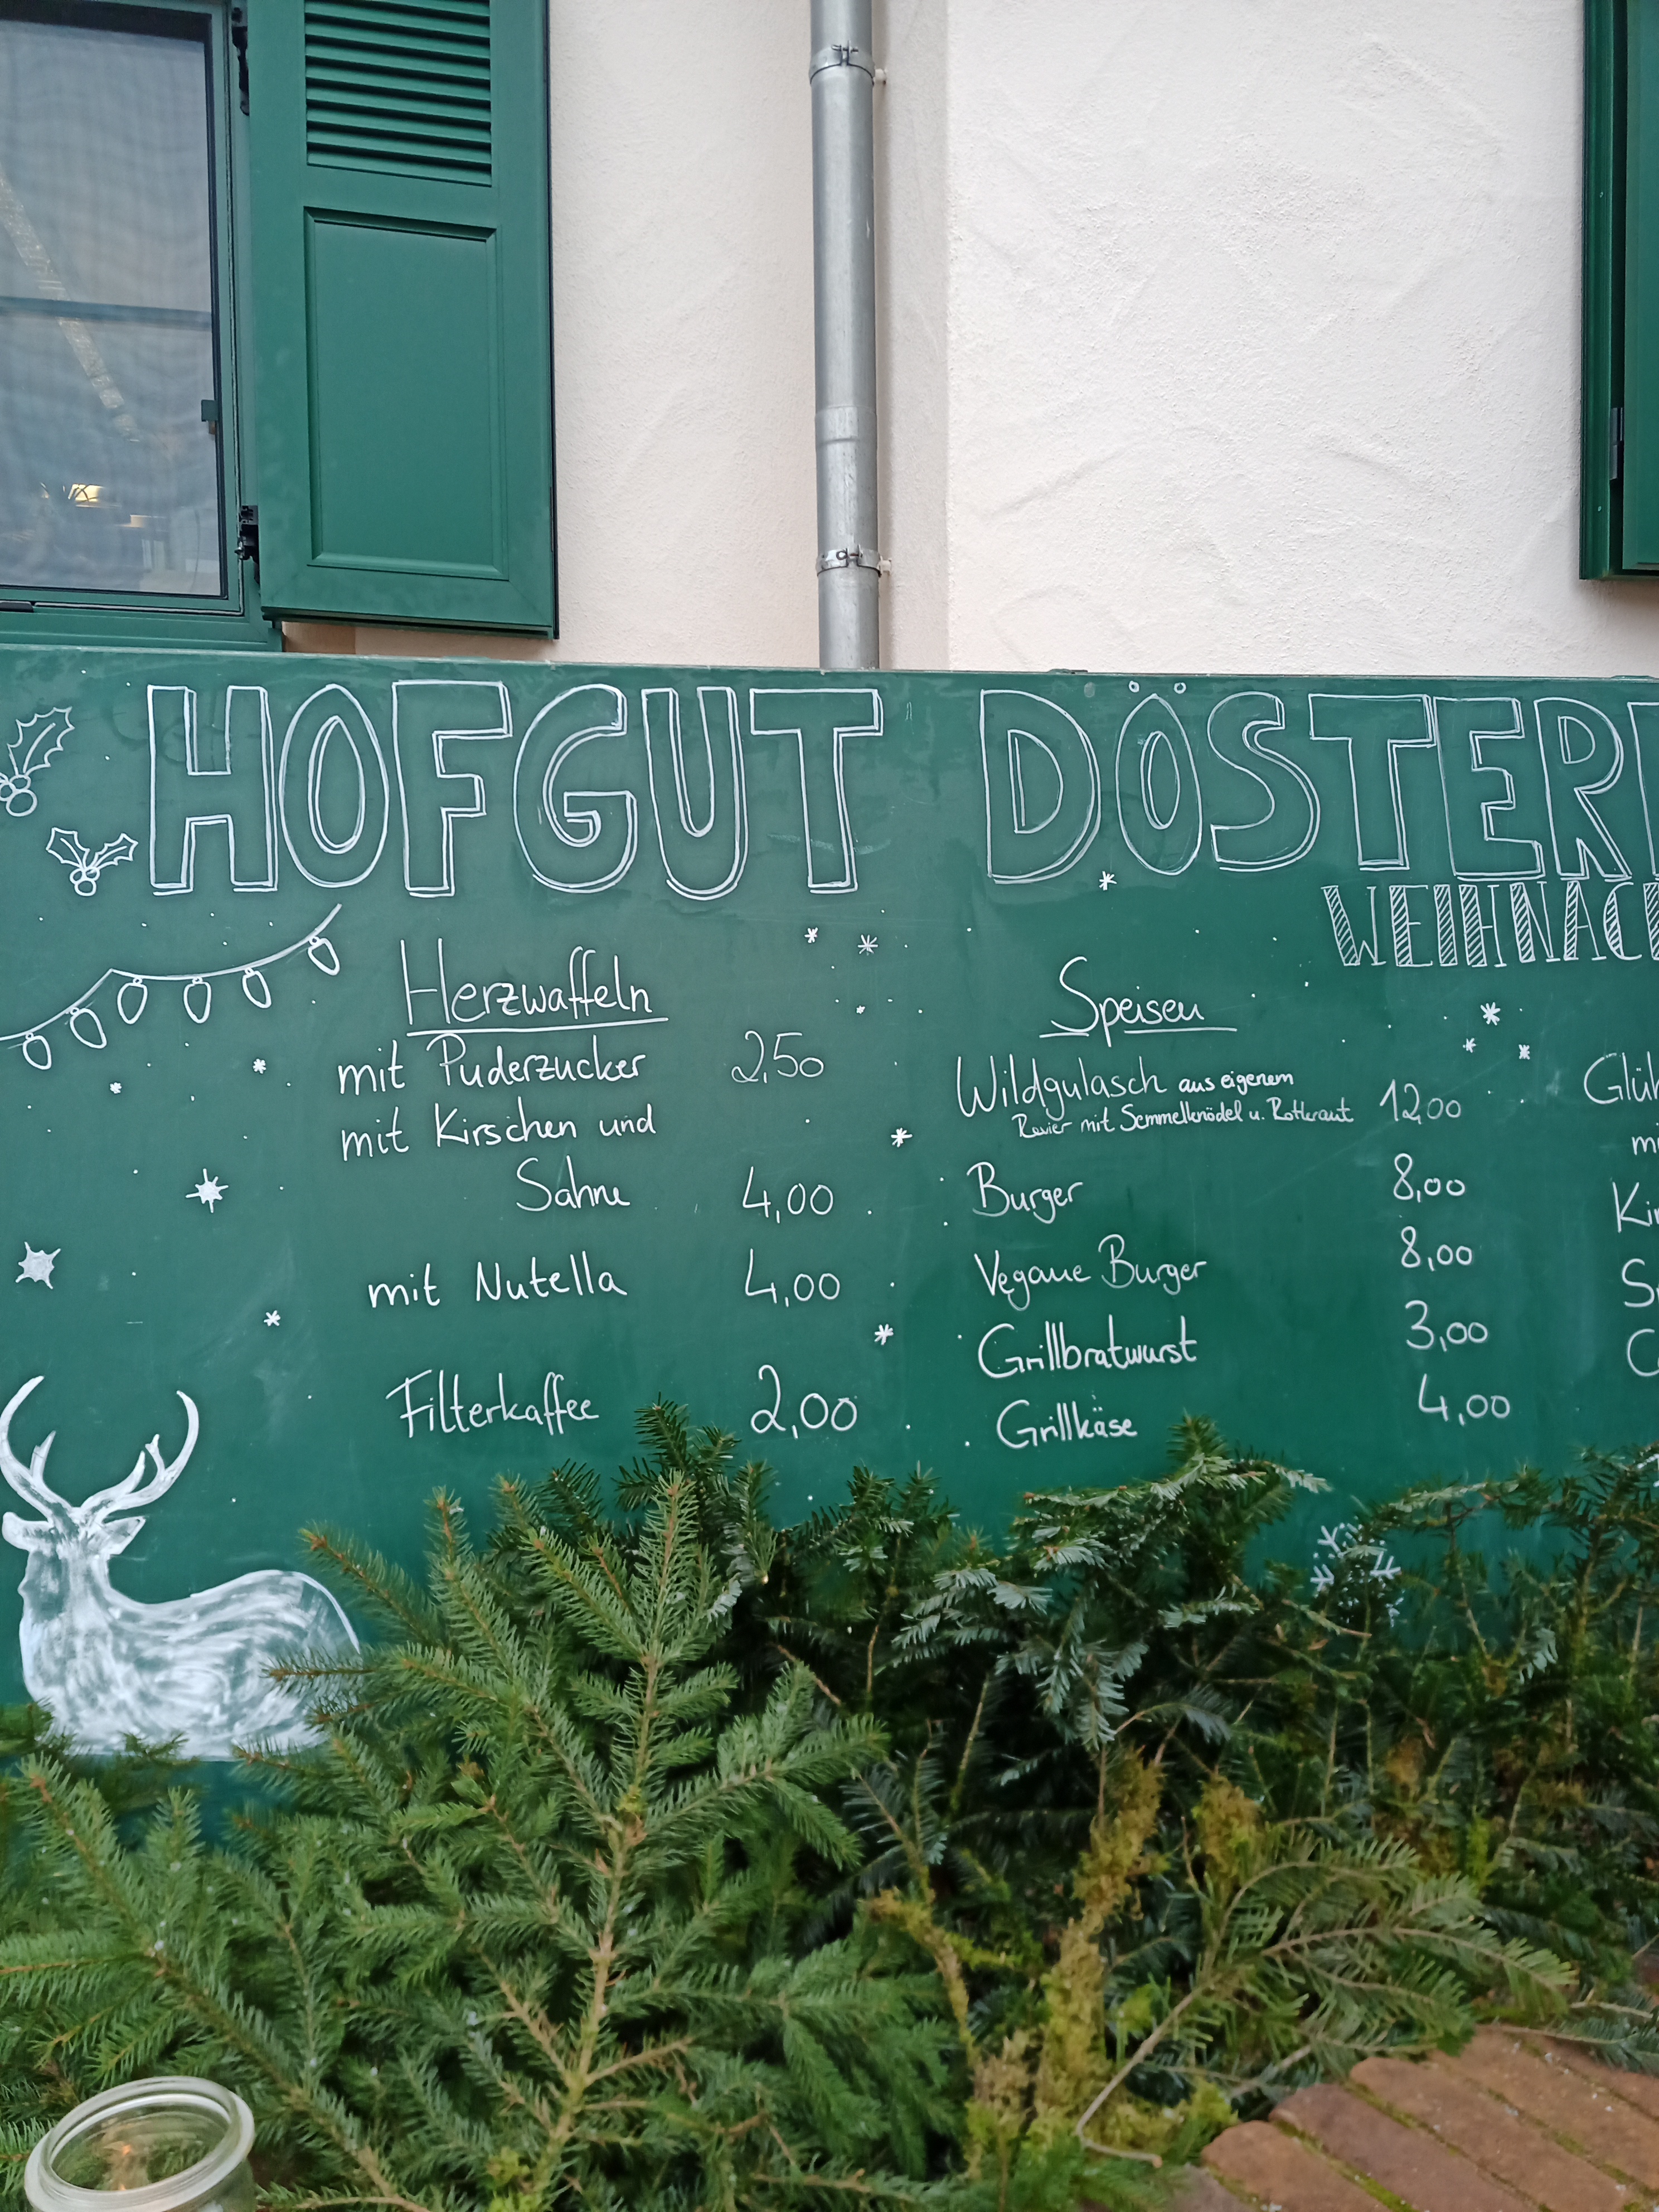 HOFGUT DÖSTER
WEIHNAC
Herzwaffeln
mit Puderzucker 2,50
mit Kirschen und
Sahne 4,00
mit Nutella 4,00
Filterkaffee 2,00
Speisen
Wildgulasch aus eigenem
Revier mit Semmelknödel u. Rotkraut 12,00
Burger 8,00
Vegane Burger 8,00
Grillbratwurst 3,00
Grillkäse 4,00
Glüh
mi
Ki